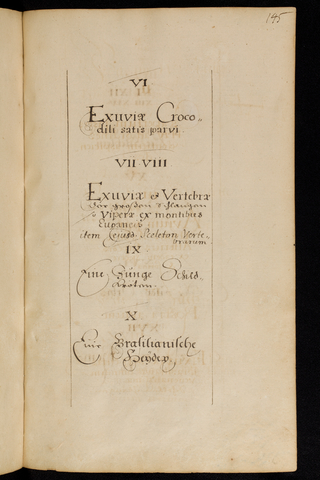 145
VI
Exuviæ Croco-
dili satis parvi
VII VIII
Exuviæ & Vertebræ
der großen Schlangen
Viperæ ex montibus
item Ejusd. Sceleton Verte-
brarum
IX
Eine Junge Schild-
kroten
X
Eine Brasilianische
Heydex